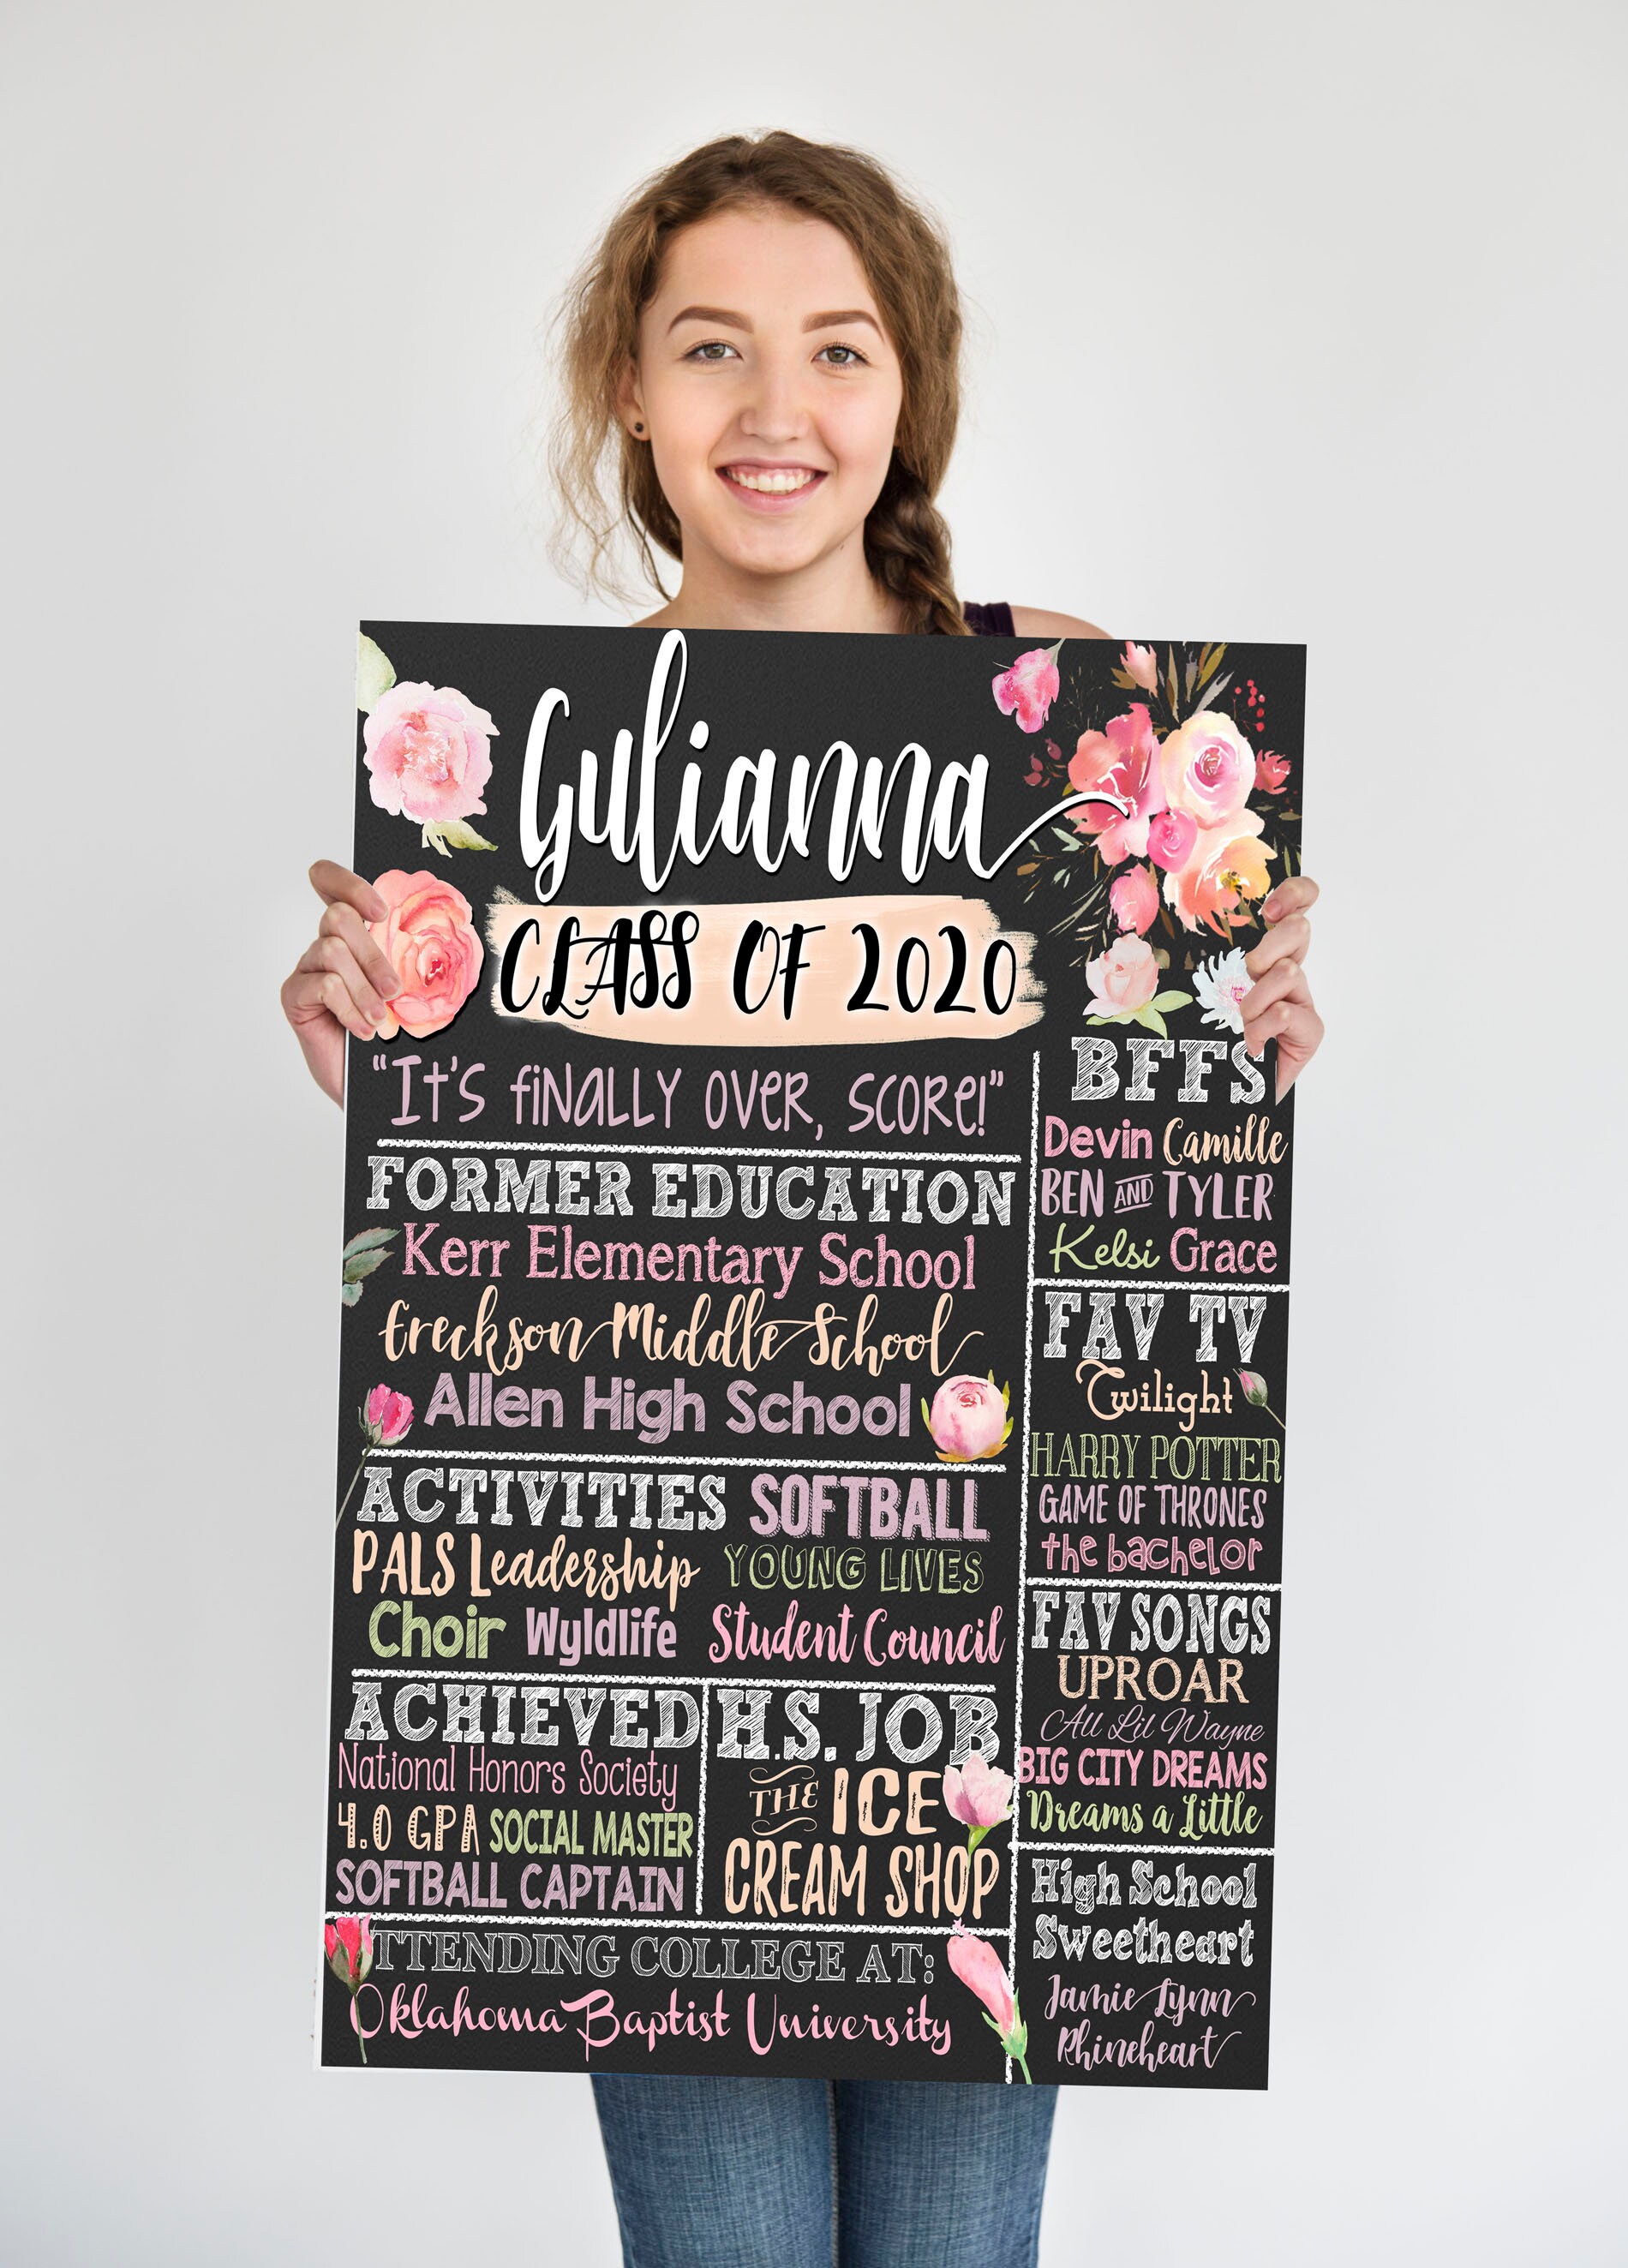 Gulianna
CLASS OF 2020
"It's finally over, score!"
FORMER EDUCATION
Kerr Elementary School
Ereckson Middle School
Allen High School
ACTIVITIES SOFTBALL
PALS Leadership YOUNG LIVES
Choir Wyldlife Student Council
ACHIEVED
National Honors Society
4.0 GPA SOCIAL MASTER
SOFTBALL CAPTAIN
H.S. JOB
THE ICE
CREAM SHOP
TTENDING COLLEGE AT:
Oklahoma Baptist University
BFFS
Devin Camille
BEN AND TYLER
Kelsi Grace
FAV TV
Twilight
HARRY POTTER
GAME OF THRONES
the bachelor
FAV SONGS
UPROAR
All Lil Wayne
BIG CITY DREAMS
Dreams a Little
High School
Sweetheart
Jamie Lynn
Rhineheart